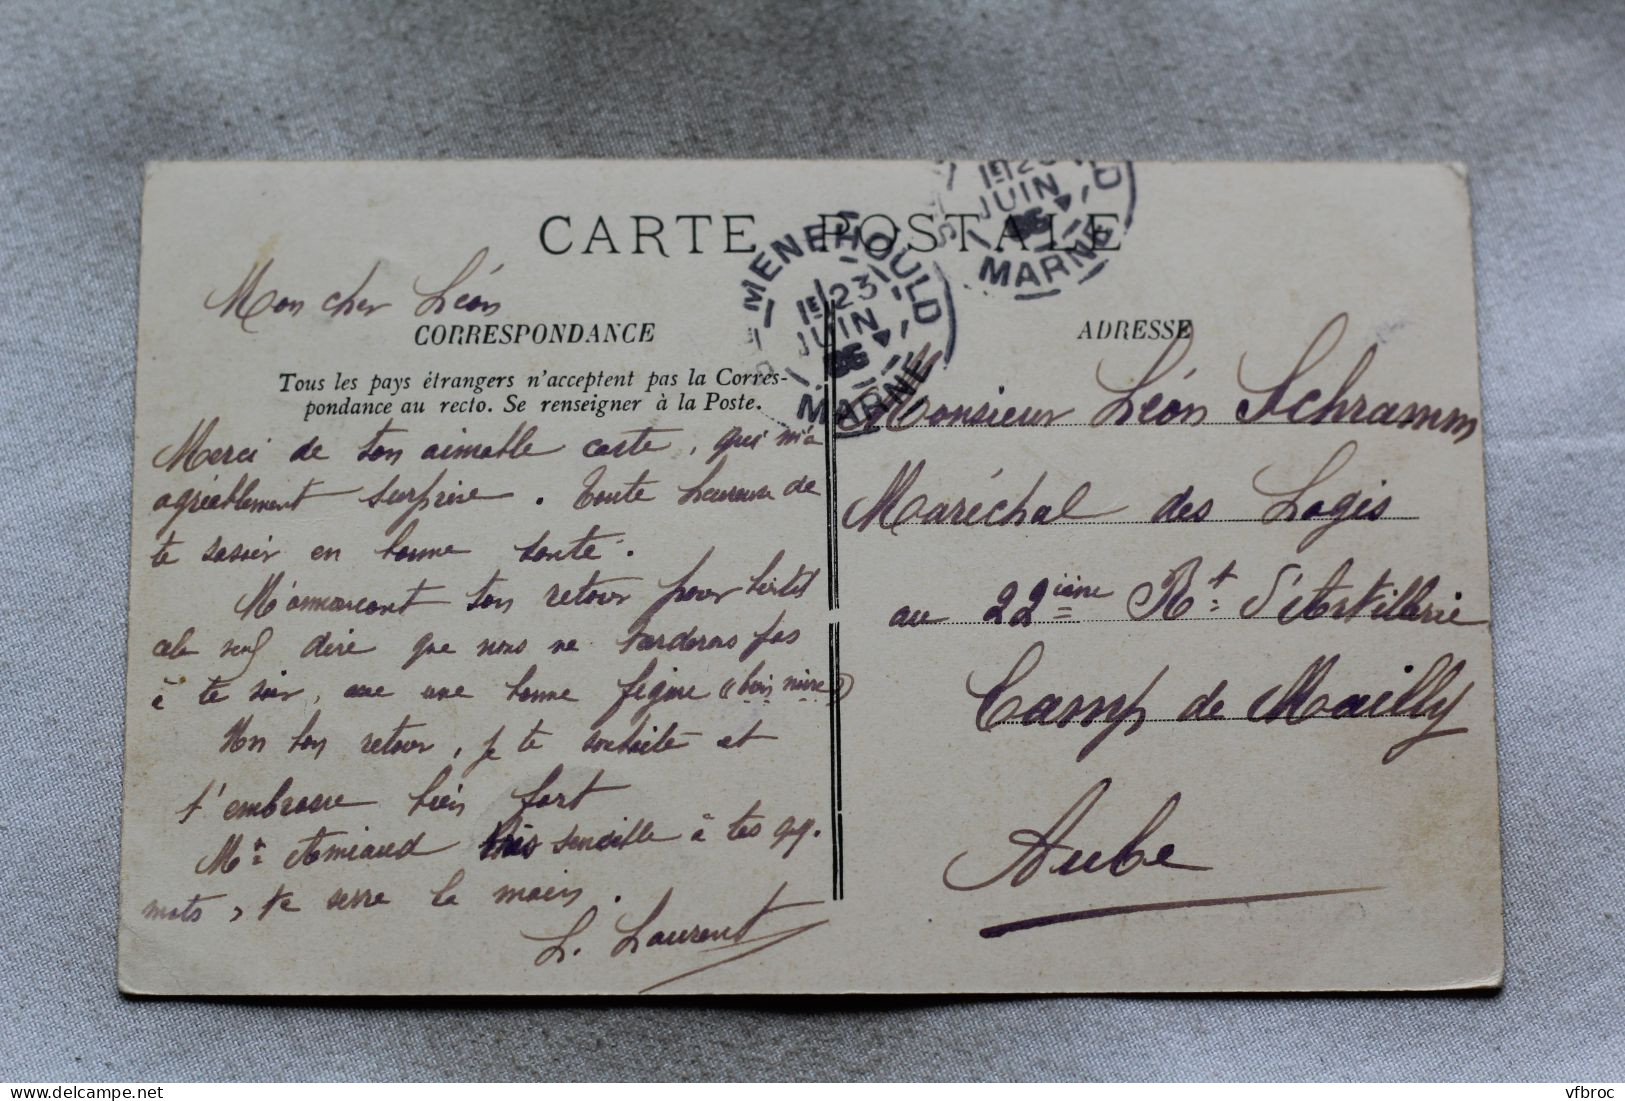 CARTE POSTALE
Mon cher Léon
CORRESPONDANCE
Tous les pays étrangers n'acceptent pas la Corres-
pondance au recto. Se renseigner à la Poste.
Merci de ton aimable carte, qui m'a
agréablement surprise. Toute heureuse de
te savoir en bonne santé.
M'annoncant ton retour pour
dire que nous ne tarderons pas
à te voir, une bonne figure
Un bon retour, je te souhaite et
t'embrasse bien fort
Mr Amiaud très sensible à tes qq.
mots, te serre la main.
L. Laurent
MENEHOULD
1E 23
JUIN
MARNE
JUIN
MARNE
ADRESSE
Monsieur Léon Schramm
Maréchal des Logis
au 22ième Rt d'Artillerie
Camp de Mailly
Aube
vfbroc